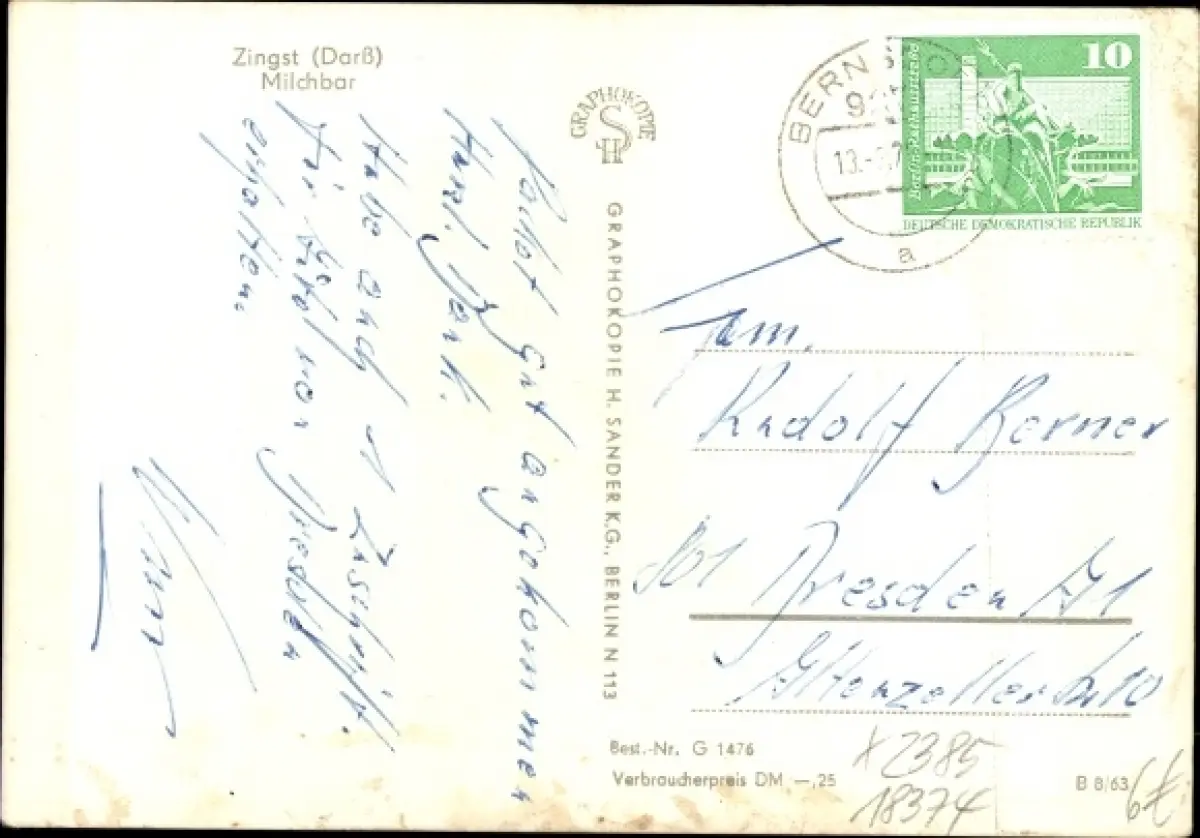 Zingst (Darß)
Milchbar
Paket gut angekommen
Herzl. Dank.
Habe auch 1 Zuschrift
für
von Dresden
erhalten.
GRAPHOKOPIE
H S
GRAPHOKOPIE H. SANDER K.G., BERLIN N 113
BERNSTO
13.
a
10
Berlin-Rathausstraße
DEUTSCHE DEMOKRATISCHE REPUBLIK
Fam.
Rudolf Berner
801 Dresden A1
Altenzellerstr. 10
Best.-Nr. G 1476
Verbraucherpreis DM —,25
B 8/63
x2385
18374
6€